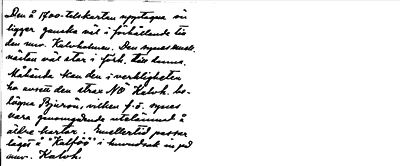 Den å 1700-talskartan upptagna ön
ligger ganska väl i förhållande till
den nuv. Kalvholmen. Den synes emell.
nästan väl stor i förh. till denna.
Måhända kan den i verkligheten
ha avsett den strax NO Kalvh. be-
lägna Björnön, vilken f.ö. synes
vara genomgående utelämnad å
äldre kartor. Emellertid passar
läget å "Kalföö" i huvudsak in på
nuv. Kalvh.